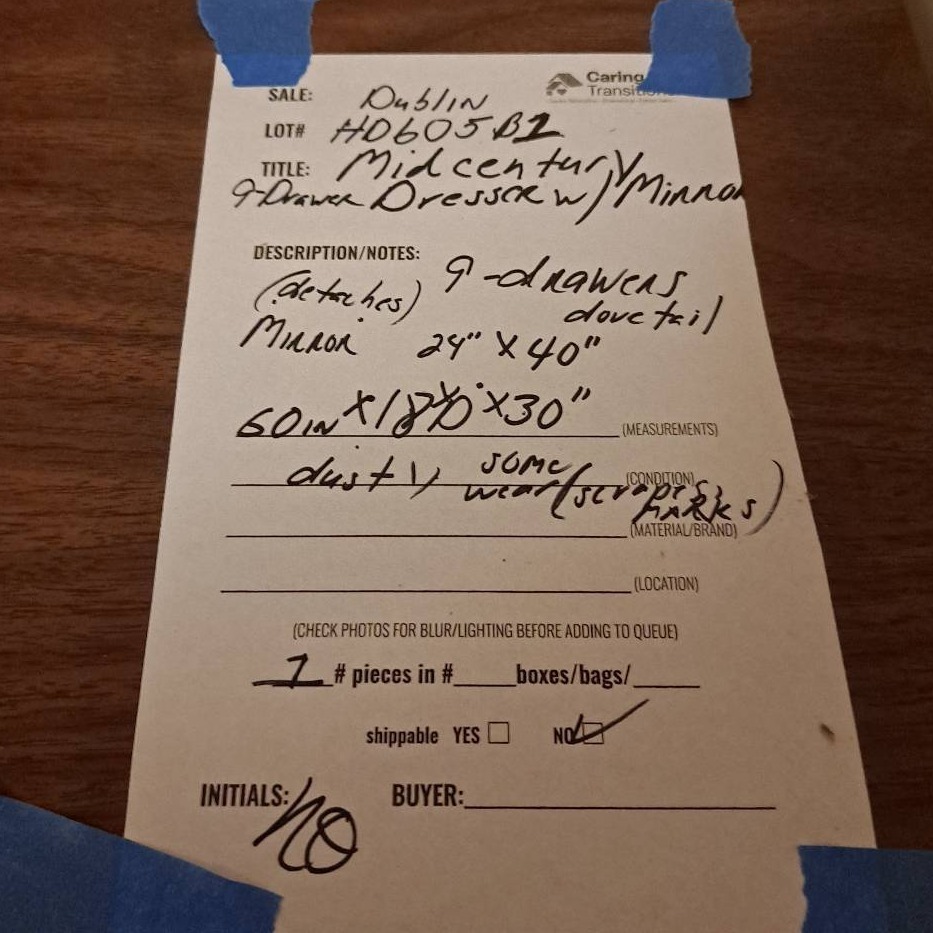 Caring
Transitions
SALE: Dublin
LOT# HD605B1
TITLE: Midcentury
9-Drawer Dresser w/ Mirror
DESCRIPTION/NOTES: 9-drawers
(detaches) dovetail
Mirror 24" X 40"
60in X 18 X 30" (MEASUREMENTS)
dusty, some (CONDITION)
wear (scrapes,
marks)
(MATERIAL/BRAND)
(LOCATION)
(CHECK PHOTOS FOR BLUR/LIGHTING BEFORE ADDING TO QUEUE)
1 # pieces in #____boxes/bags/____
shippable YES ☐ NO ☑
INITIALS: BUYER: